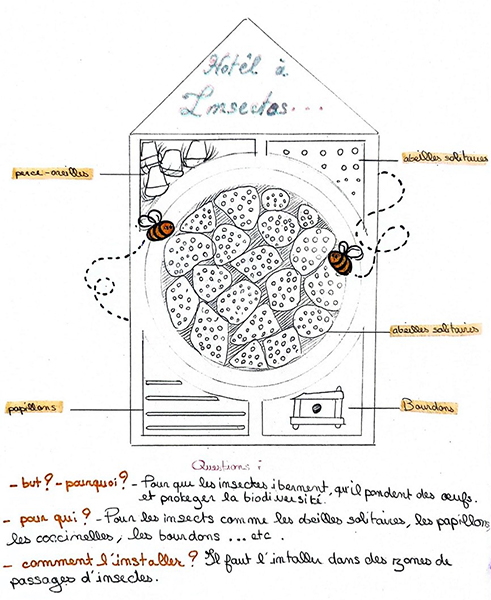 Hotêl à
Insectes...
perce-oreilles
abeilles solitaires
abeilles solitaires
papillons
Bourdons
Questions :
- but ? - pourquoi ? - Pour que les insectes ibernent, qu'il pondent des œufs.
et proteger la biodiversité.
- pour qui ? - Pour les insects comme les abeilles solitaires, les papillons
les coccinelles, les bourdons ... etc .
- comment l'installer ? Il faut l'intaller dans des zones de
passages d'insectes.